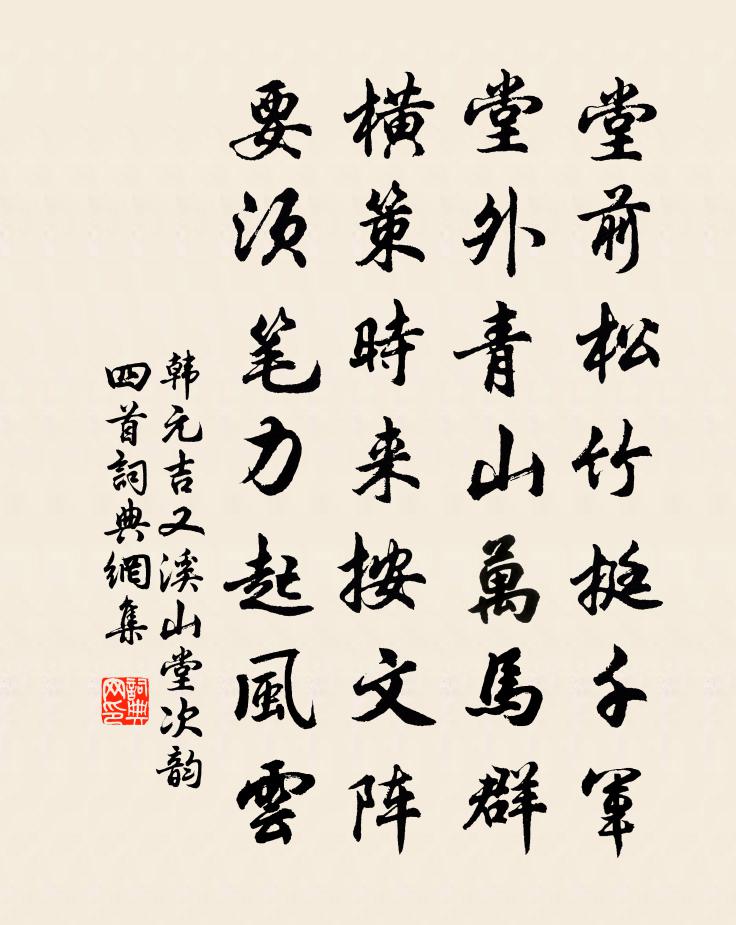 堂前松竹挺千軍
堂外青山萬馬群
橫策時来按文阵
要須笔力起風雲
韩元吉又溪山堂次韵
四首詞典網集
詞典
网印